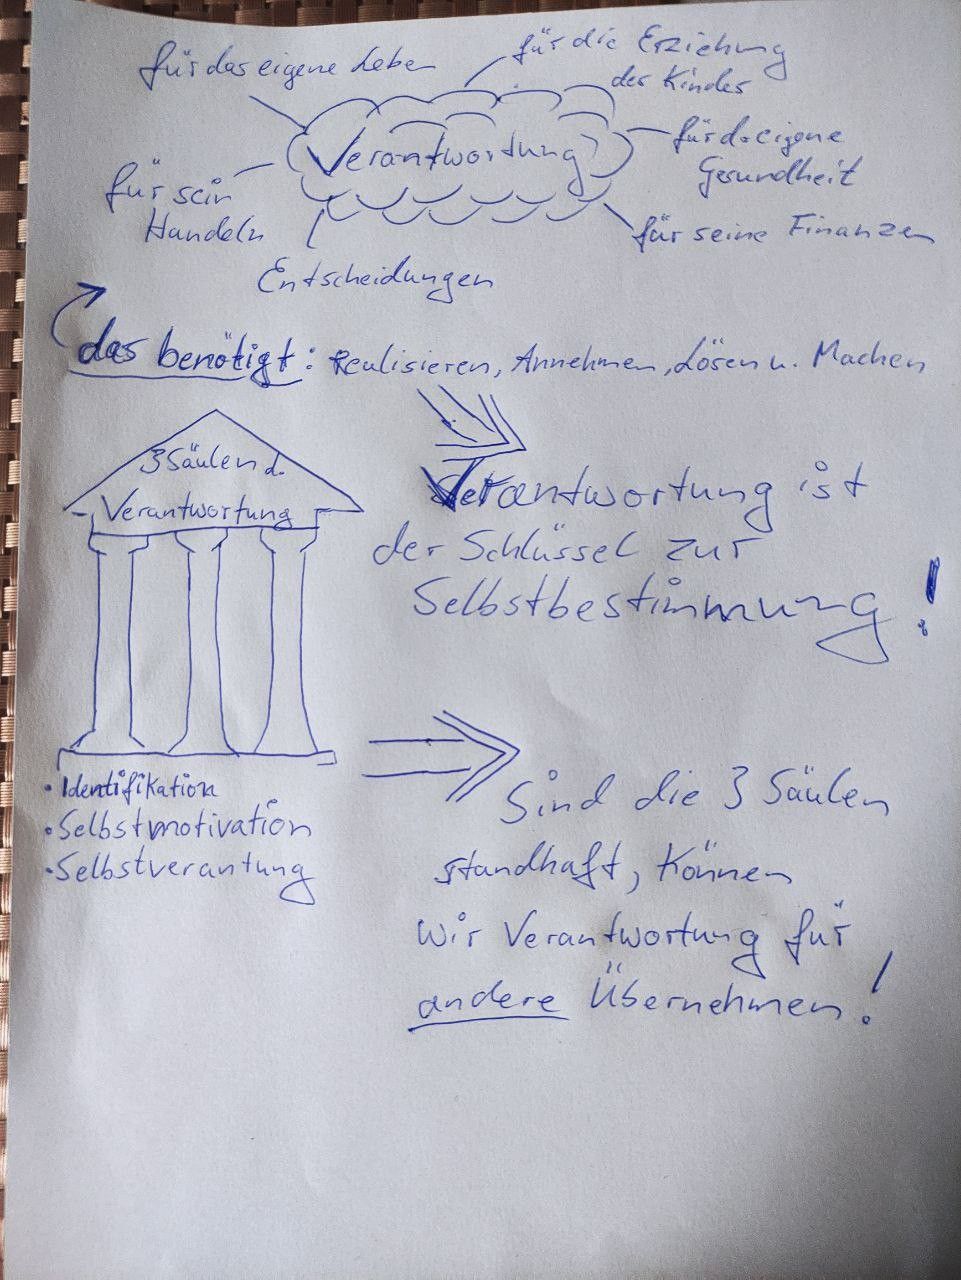 für das eigene Leben
für die Erziehung
des Kindes
Verantwortung
für d. eigene
Gesundheit
für sein
Handeln
für seine Finanzen
Entscheidungen
das benötigt: Realisieren, Annehmen, Lösen u. Machen
3 Säulen d.
Verantwortung
Verantwortung ist
der Schlüssel zur
Selbstbestimmung!
• Identifikation
• Selbstmotivation
• Selbstverantung
Sind die 3 Säulen
standhaft, können
wir Verantwortung für
andere Übernehmen!